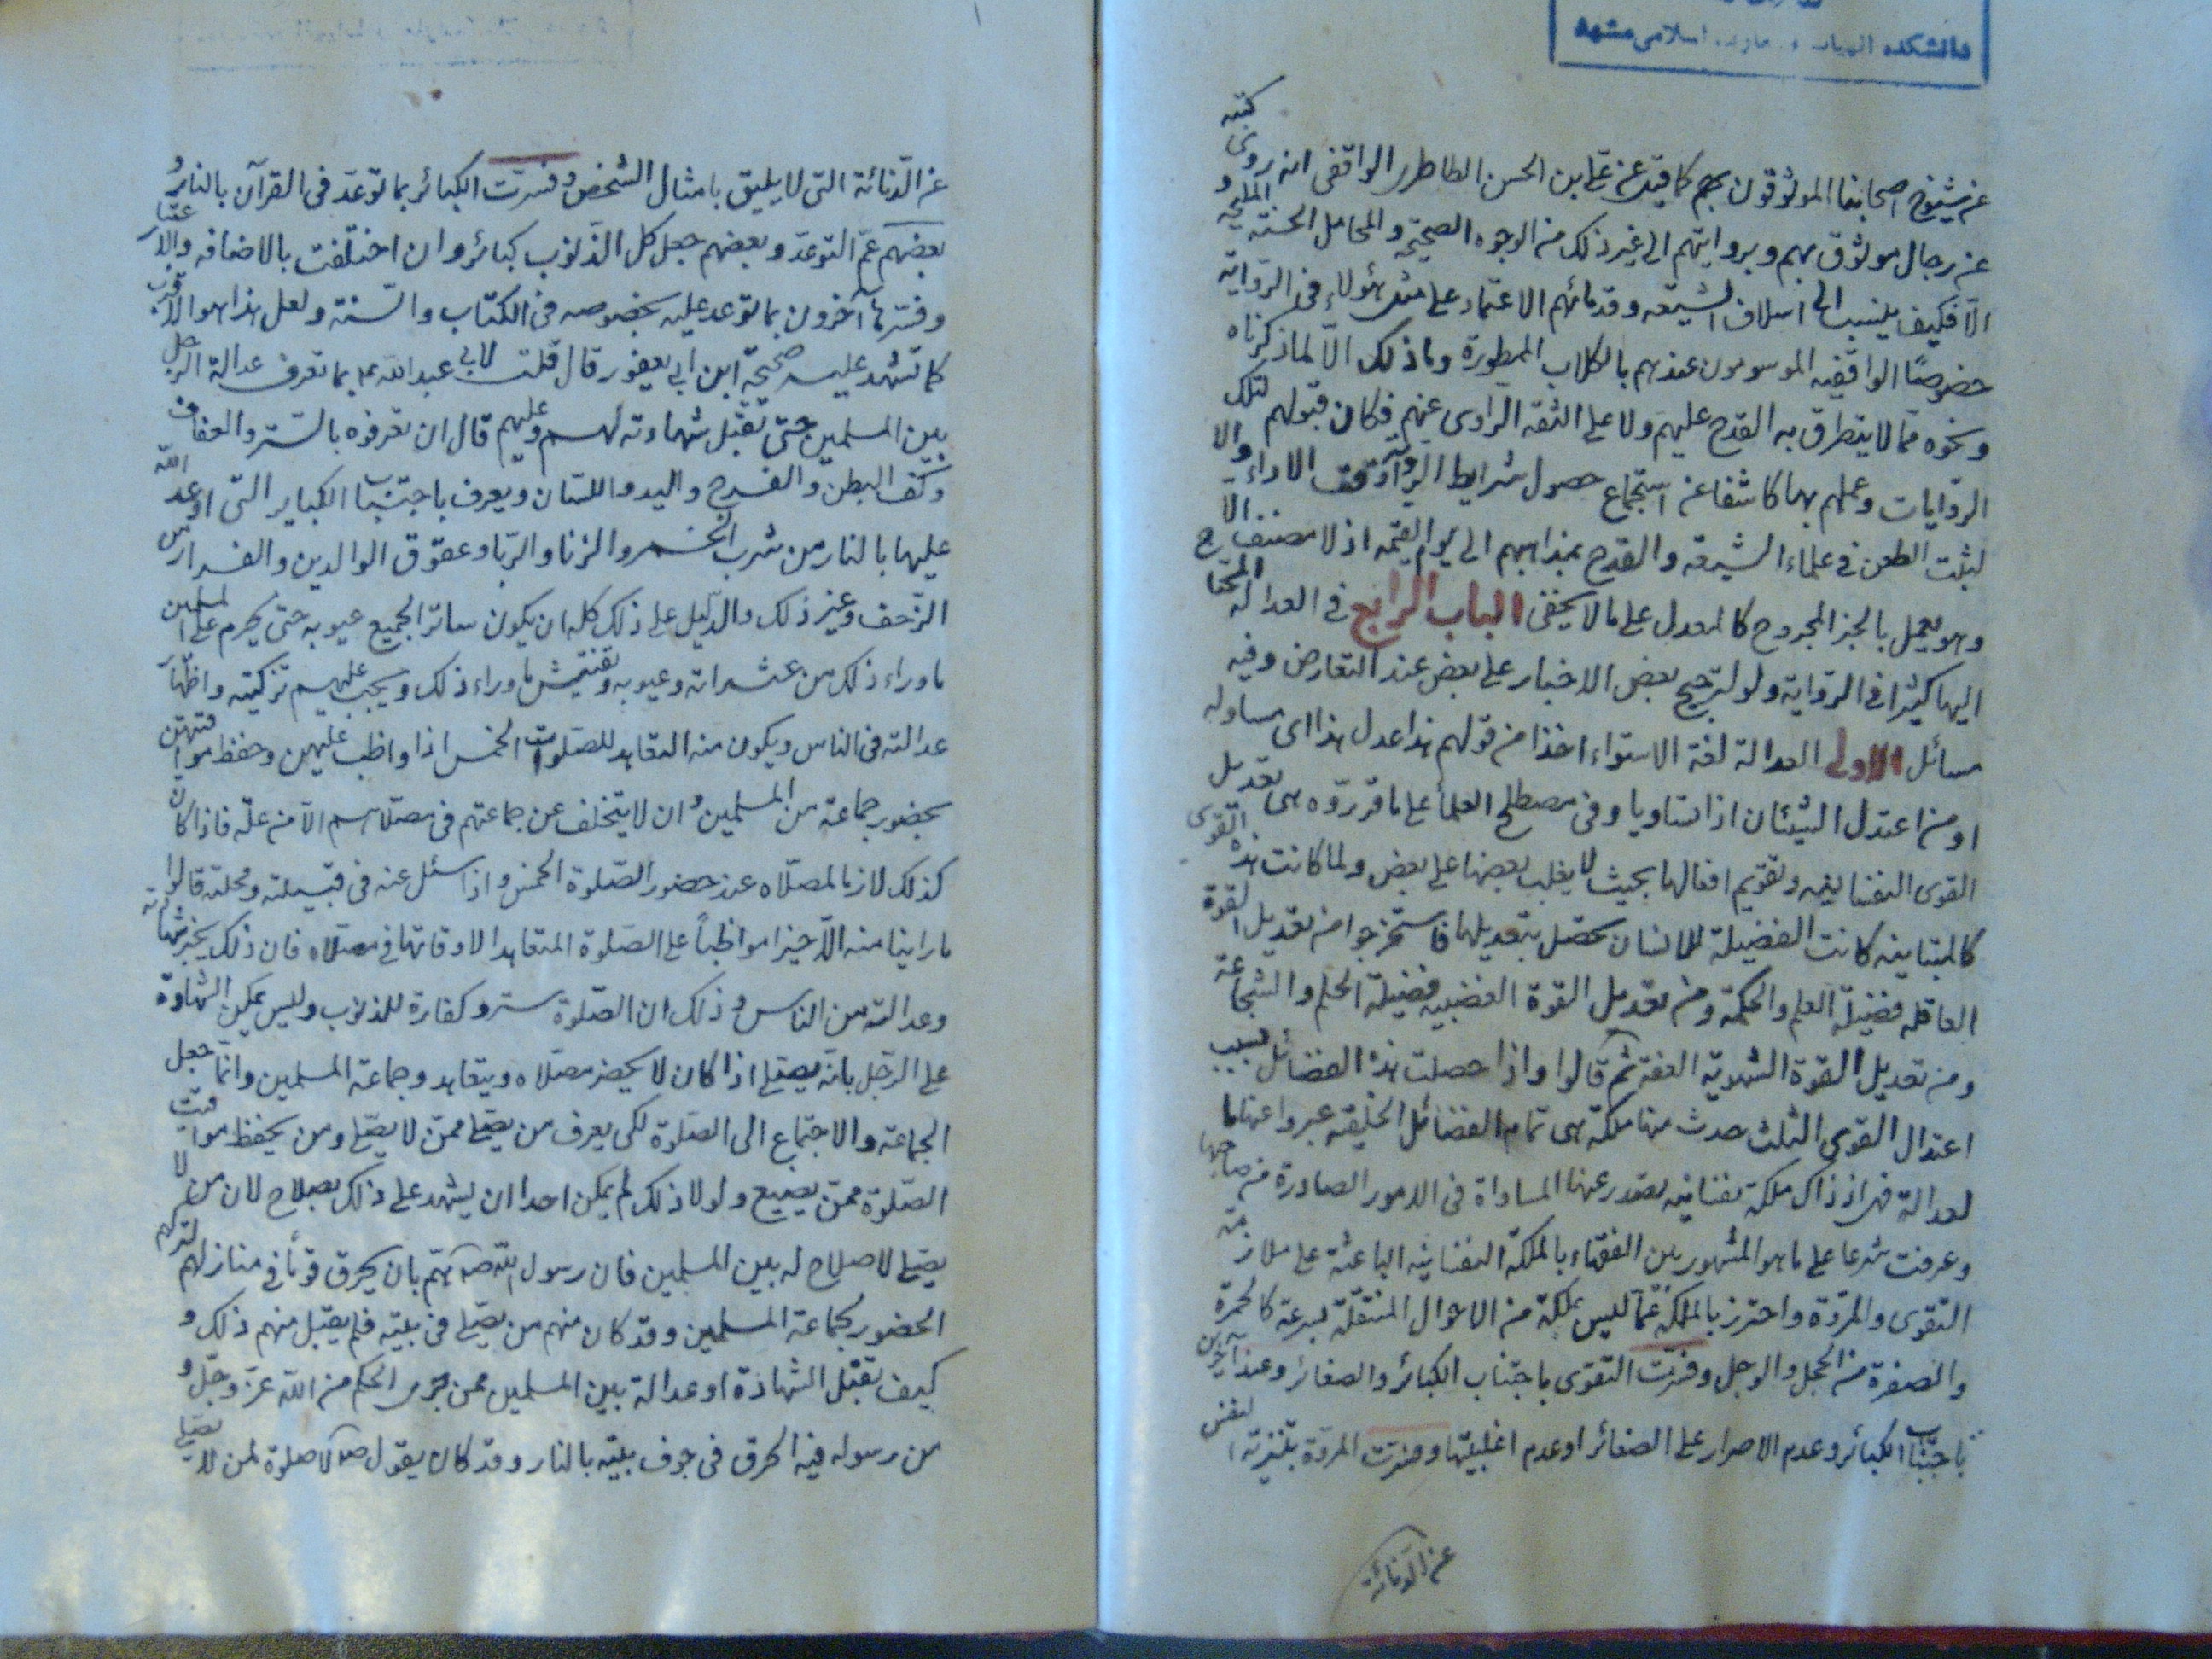 دانشكده الهيات و معارف اسلامى مشهد
عن شيوخ اصحابنا الموثوقون بهم كما قيد عن على بن الحسن الطاطرى الواقفى انه روى كتبه
عن رجال موثوق بهم وبرواياتهم الى غير ذلك من الوجوه الصحيحة والمحامل الحسنة المليحة و
الا فكيف ينسب الى اسلاف الشيعه وقدمائهم الاعتماد على مثل هؤلاء فى الرواية
خصوصًا الواقفيه الموسومون عندهم بالكلاب الممطورة وما ذلك الّا لما ذكرناه
ونحوه مما لا يتطرق به القدح عليهم ولا على الثقه الراوى عنهم فكان قبولهم لتلك
الروايات وعملهم بها كاشفا عن استجماع حصول شرايط الرواية وقت الاداء والا
لثبت الطعن فى علماء الشيعة والقدح بمذاهبهم الى يوم القيمه اذ لا مصنف الّا
وهو يعمل بالخبر المجروح كالمعدل على ما لا يخفى الباب الرابع فى العدالة المحتاج
اليها كثيرا فى الرواية ولو لترجيح بعض الاخبار على بعض عند التعارض وفيه
مسائل الاولى العدالة لغة الاستواء اخذا من قولهم هذا عدل هذا اى مساو له
او من اعتدل الشيئان اذا تساويا وفى مصطلح العلماء على ما قرروه هى تعديل
القوى النفسانيه وتقويم افعالها بحيث لا يغلب بعضها على بعض ولما كانت هذه القوى
كالمتباينه كانت الفضيلة للانسان تحصل بتعديلها فاستخرجوا من تعديل القوة
العاقله فضيلة العلم والحكمة ومن تعديل القوة الغضبيه فضيلة الحلم والشجاعة
ومن تعديل القوة الشهوية العفه ثم قالوا واذا حصلت هذه الفضائل بسبب
اعتدال القوى الثلث حدث منها ملكة هى تمام الفضائل الخلقيه عبروا عنها با
لعدالة فهى اذ ذاك ملكة نفسانيه تصدر عنها المساواة فى الامور الصادرة من صاحبها
وعرفت شرعا على ما هو المشهور بين الفقهاء بالملكة النفسانية الباعثة على ملازمة
التقوى والمروّة واحترز بالملكة عمّا ليس بملكة من الاحوال المنتقلة بسرعة كالحمرة
والصفرة من الخجل والوجل وفسرت التقوى باجتناب الكبائر والصغائر وعند آخرين
باجتناب الكبائر وعدم الاصرار على الصغائر او عدم اغلبيتها وفسرت المروة بتنزيه النفس
عن الدنائة
عن الدّنائة التى لا يليق بامثال الشخص وفسرت الكبائر بما توعّد فى القرآن بالنار و
بعضهم عمّ التوعّد وبعضهم جعل كل الذّنوب كبائر وان اختلفت بالاضافه والاعتبار
وفسّرها آخرون بما توعد عليه بخصوصه فى الكتاب والسّنة ولعل هذا هو الاقرب
كما تشهد عليه صحيحة ابن ابى يعفور قال قلت لابى عبد الله ع بما تعرف عدالة الرجل
بين المسلمين حتى تقبل شهادته لهم وعليهم قال ان تعرفوه بالستر والعفاف
وكف البطن والفرج واليد واللسان ويعرف باجتناب الكباير التى اوعد الله
عليها بالنار من شرب الخمر والزنا والربا وعقوق الوالدين والفرار من
الزّحف وغير ذلك والدّليل على ذلك كله ان يكون ساتر الجميع عيوبه حتى يحرم على المسلمين
ما وراء ذلك من عثراته وعيوبه وتفتيش ما وراء ذلك ويجب عليهم تزكيته واظهار
عدالته فى الناس ويكون منه التعاهد للصّلوات الخمس اذا واظب عليهن وحفظ مواقيتهن
بحضور جماعة من المسلمين وان لا يتخلف عن جماعتهم فى مصلّاهم الّا من علّه فاذا كان
كذلك لازما لمصلّاه عند حضور الصّلوة الخمس واذا سئل عنه فى قبيلته ومحلته قالوا
ما راينا منه الّا خيرا مواظباً على الصّلوة المتعاهدا لاوقاتها فى مصلّاه فان ذلك يجيز شهادته
وعدالته بين الناس وذلك ان الصّلوة ستر وكفارة للذنوب وليس يمكن الشهادة
على الرجل بانّه يصلى اذا كان لا يحضر مصلّاه ويتعاهد وجماعة المسلمين وانّما جعل
الجماعة والاجتماع الى الصّلوة لكى يعرف من يصلى ممن لا يصلى ومن يحفظ مواقيت
الصّلوة ممن يضيع ولولا ذلك لم يمكن احدا ان يشهد على ذلك بصلاح لان من لا
يصلى لا صلاح له بين المسلمين فان رسول الله ص همّ بان يحرق قوماً فى منازلهم لتركهم
الحضور لجماعة المسلمين وقد كان منهم من يصلى فى بيته فلم يقبل منهم ذلك و
كيف تقبل الشهادة او عدالة بين المسلمين ممن جرى الحكم من الله عز وجلّ و
من رسوله فيه الحرق فى جوف بيته بالنار وقد كان يقول ص لا صلوة لمن لا يصلى